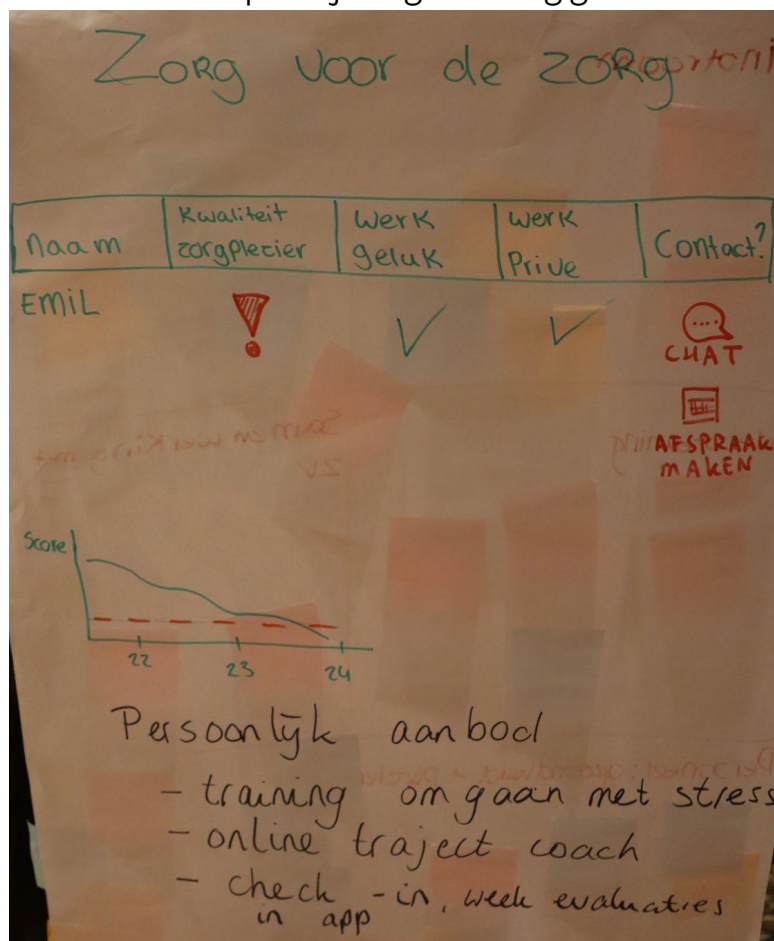 Zorg voor de zorg
naam
Kwaliteit
zorgplezier
Werk
geluk
Werk
Prive
Contact?
EMIL
CHAT
AFSPRAAK
MAKEN
Samen werking met
ZV
Score
22
23
24
Persoonlijk aanbod
- training omgaan met stress
- online traject coach
- check-in, week evaluaties
in app